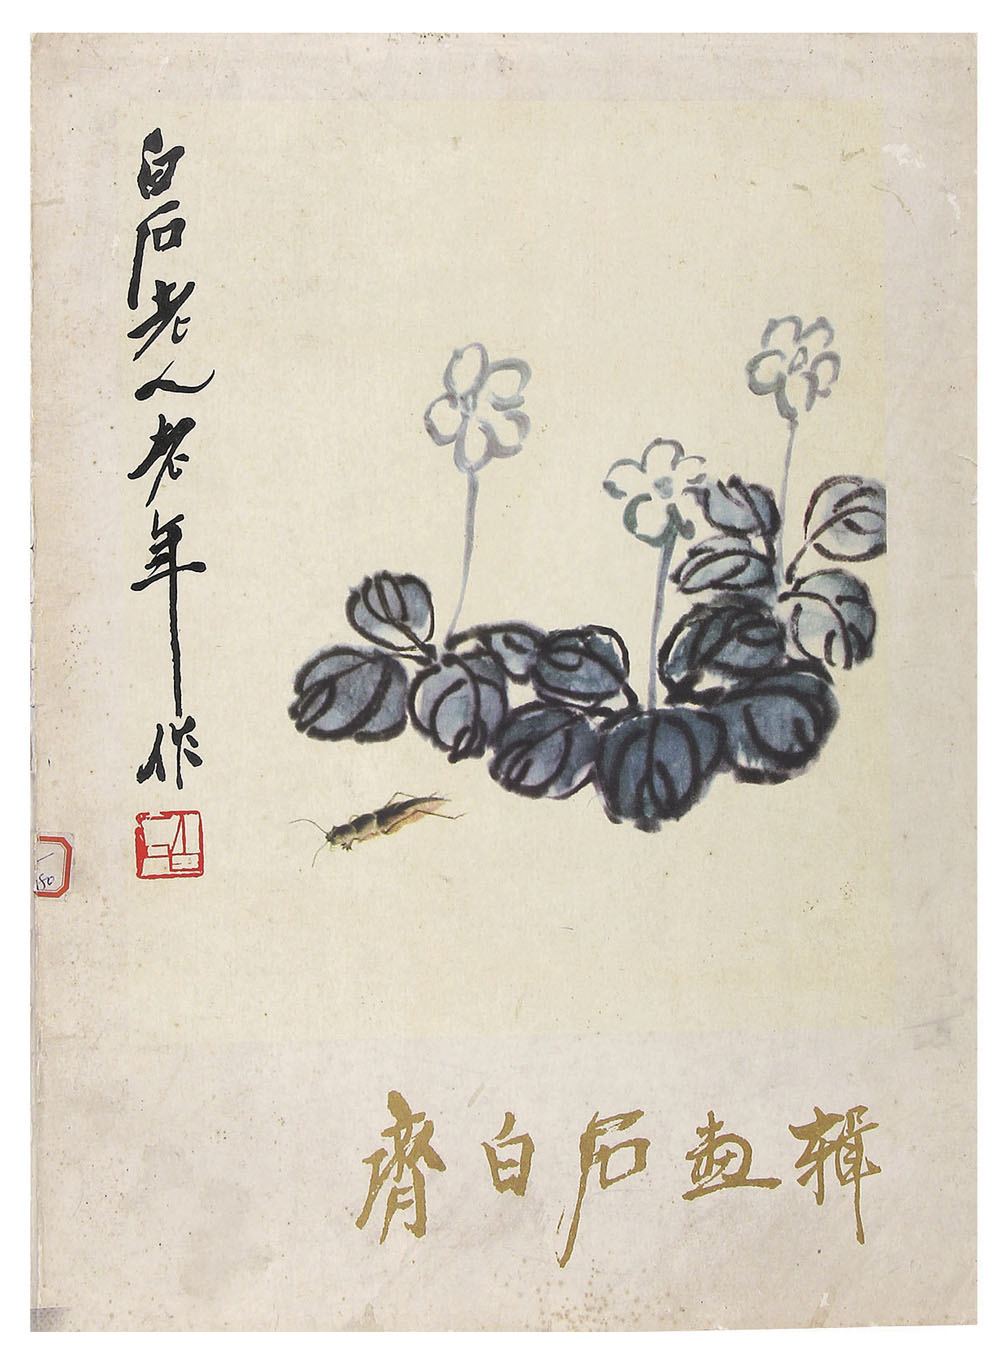 白石老人老年作
齊白石畫輯
150